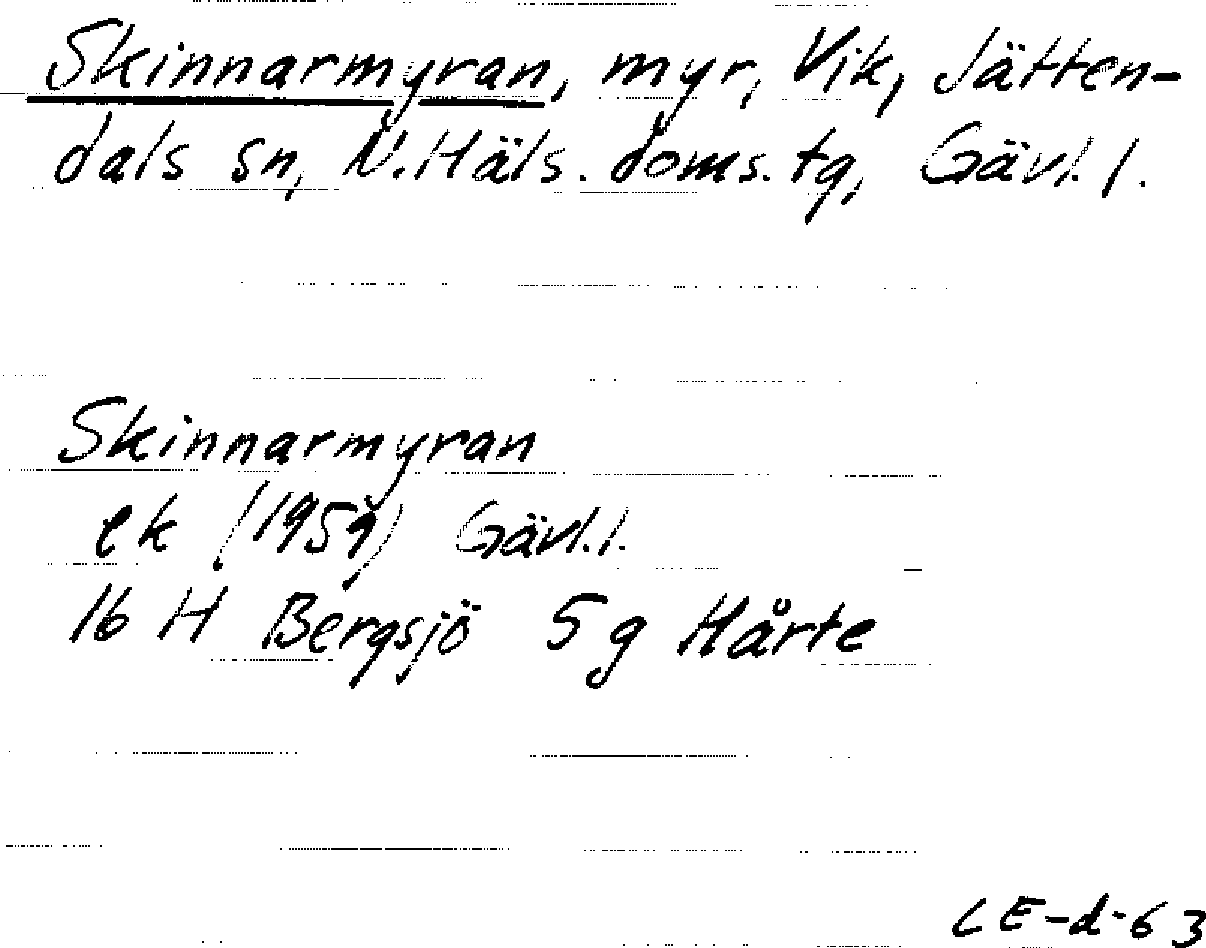 Skinnarmyran, myr, Vik, Jätten-
dals sn, N.Häls. doms. tg, Gävl. l.
Skinnarmyran
ek (1959) Gävl. l.
16 H Bergsjö 5 g Hårte
LE-d-63